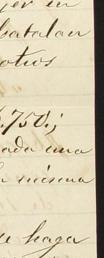 en
batalan
otros
5.750;
cada una
la misma
se haga